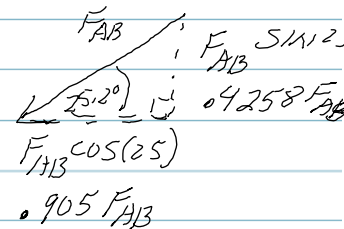 F_AB
F_AB sin25
25.2°
.4258 F_AB
F_AB cos(25)
.905 F_AB